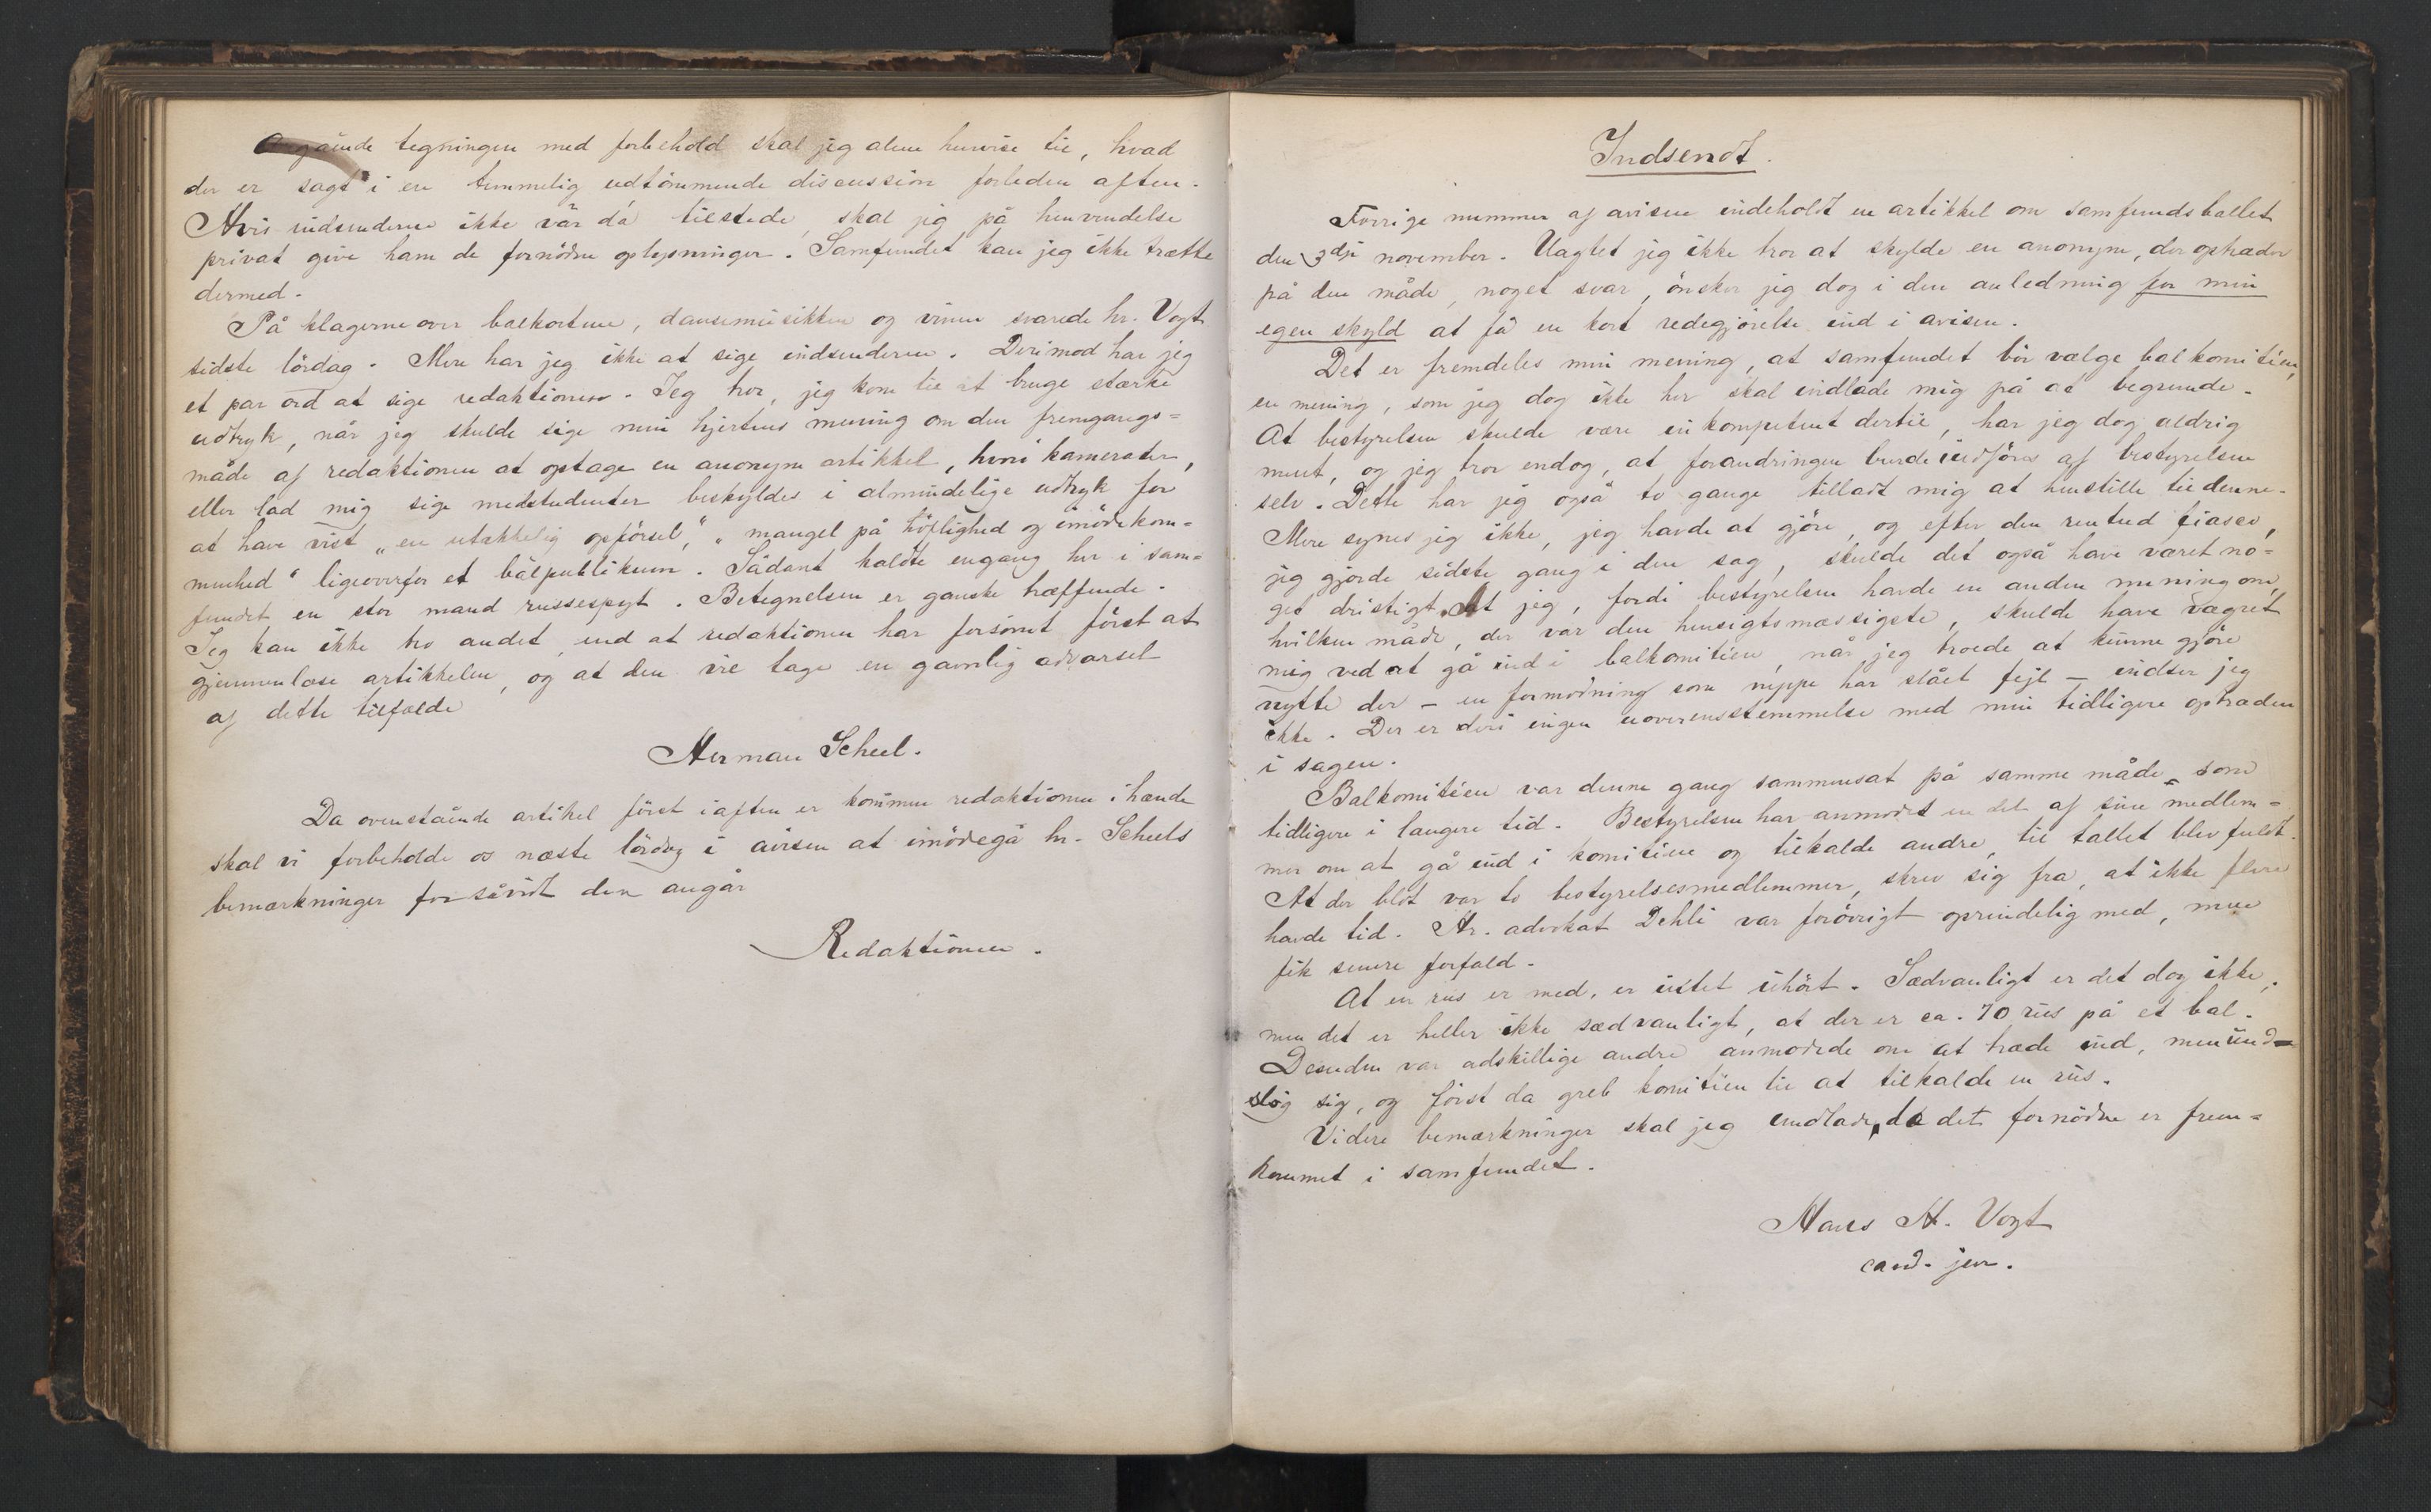 Angående tegningen med forbehold skal jeg alene henvise til, hvad
der er sagt i en temmelig udtömmende discussion forleden aften.
Hvis indsenderne ikke var da tilstede, skal jeg på henvendelse
privat give ham de fornödne oplysninger. Samfundet kan jeg ikke trætte
dermed.
På klagerne over balkortene, dansemusikken og vinen svarede hr. Vogt
sidste lördag. Mere har jeg ikke at sige indsenderen. Derimod har jeg
et par ord at sige redaktionen. Jeg tror, jeg kom til at bruge stærke
udtryk, når jeg skulde sige min hjertens mening om den fremgangs=
måde af redaktionen at optage en anonym artikkel, hvori kamerater,
eller lad mig sige medstudenter beskyldes i almindelige udtryk for
at have vist „en utækkelig opförsel,“ „mangel på höflighed og imödekom=
menhed“ ligeoverfor et balpublikum. Sådant kaldte engang her i sam=
fundet en stor mand russespyt. Betegnelsen er ganske træffende.
Jeg kan ikke tro andet, end at redaktionen har forsömt först at
gjennemlæse artikkelen, og at den vil tage en gavnlig advarsel
af dette tilfælde
Herman Scheel.
Da ovenstående artikel först iaften er kommen redaktionen ihænde
skal vi forbeholde os næste lördag i avisen at imödegå hr. Scheels
bemærkninger forsåvidt den angår
Redaktionen.
Indsendt.
Forrige nummer af avisen indeholdt en artikkel om samfundsballet
den 3dje november. Uagtet jeg ikke tror at skylde en anonym, der optræder
på den måde, noget svar, önsker jeg dog i den anledning for min
egen skyld at få en kort redegjörelse ind i avisen.
Det er fremdeles min mening, at samfundet bör vælge balkomitien,
en mening, som jeg dog ikke her skal indlade mig på at begrunde.
At bestyrelsen skulde være inkompetent dertil, har jeg dog aldrig
ment, og jeg tror endog, at forandringen burde indföres af bestyrelsen
selv. Dette har jeg også to gange tilladt mig at henstille til denne.
Mere synes jeg ikke, jeg havde at gjöre, og efter den rentud fiasco,
jeg gjorde sidste gang i den sag, skulde det også have været no=
get dristigt. At jeg, fordi bestyrelsen havde en anden mening om,
hvilken måde, der var den hensigtsmæssigste, skulde have vægret
mig ved at gå ind i balkomitien, når jeg troede at kunne gjöre
nytte der – en formodning som neppe har slået fejl – indser jeg
ikke. Der er deri ingen uoverensstemmelse med min tidligere optræden
i sagen.
Balkomitien var denne gang sammensat på samme måde som
tidligere i længere tid. Bestyrelsen har anmodet en del af sine medlem=
mer om at gå ind i komitien og tilkalde andre, til tallet blev fuldt.
At der blot var to bestyrelsesmedlemmer, skrev sig fra, at ikke flere
havde tid. Hr. advokat Dehli var forövrigt oprindelig med, men
fik senere forfald.
At en rus er med, er intet uhört. Sædvanligt er det dog ikke,
men det er heller ikke sædvanligt, at der er ca. 70 rus på et bal.
Desuden var adskillige andre anmodede om at træde ind, men und=
slog sig, og först da greb komitien til at tilkalde en rus.
Videre bemærkninger skal jeg undlade, da det fornödne er frem=
kommet i samfundet.
Hans H. Vogt
cand. jur.